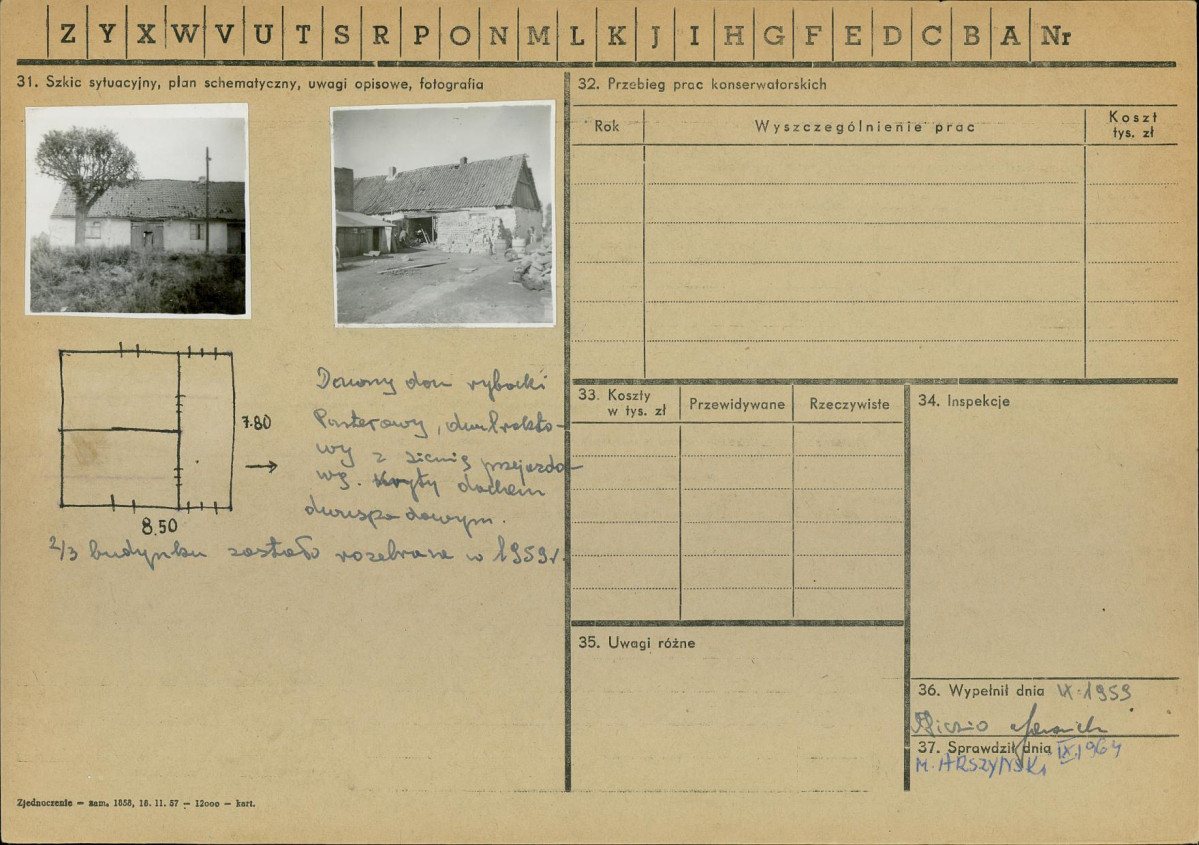 Z Y X W V U T S R P O N M L K J I H G F E D C B A Nr
31. Szkic sytuacyjny, plan schematyczny, uwagi opisowe, fotografia
7.80
8.50
Dawny dom rybacki
Parterowy, dwutrakto-
wy z sienią przejazdo-
wą. Kryty dachem
dwuspadowym.
2/3 budynku zostało rozebrane w 1959 r.
32. Przebieg prac konserwatorskich
Rok
Wyszczególnienie prac
Koszt
tys. zł
33. Koszty
w tys. zł
Przewidywane
Rzeczywiste
34. Inspekcje
35. Uwagi różne
36. Wypełnił dnia IX.1959
37. Sprawdził dnia IX.1964
M. ARSZYŃSKI
Zjednoczenie — zam. 1858, 18. 11. 57 — 12000 — kart.